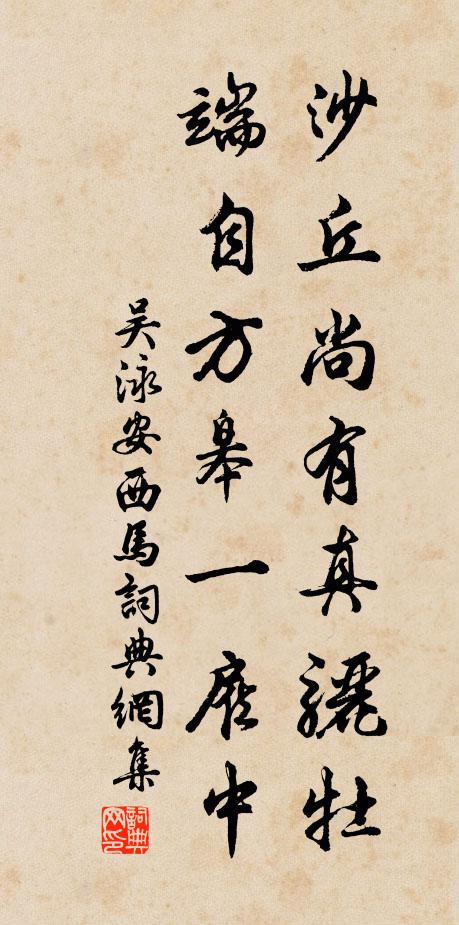 沙丘尚有真驪牡
端自方皋一顧中
吳泳安西馬詞典網集
詞典网印